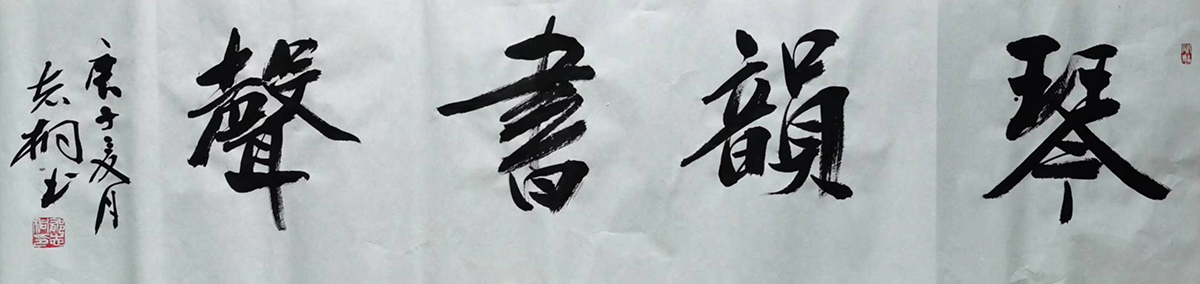 琴韻書聲
庚子夏月
志桐書